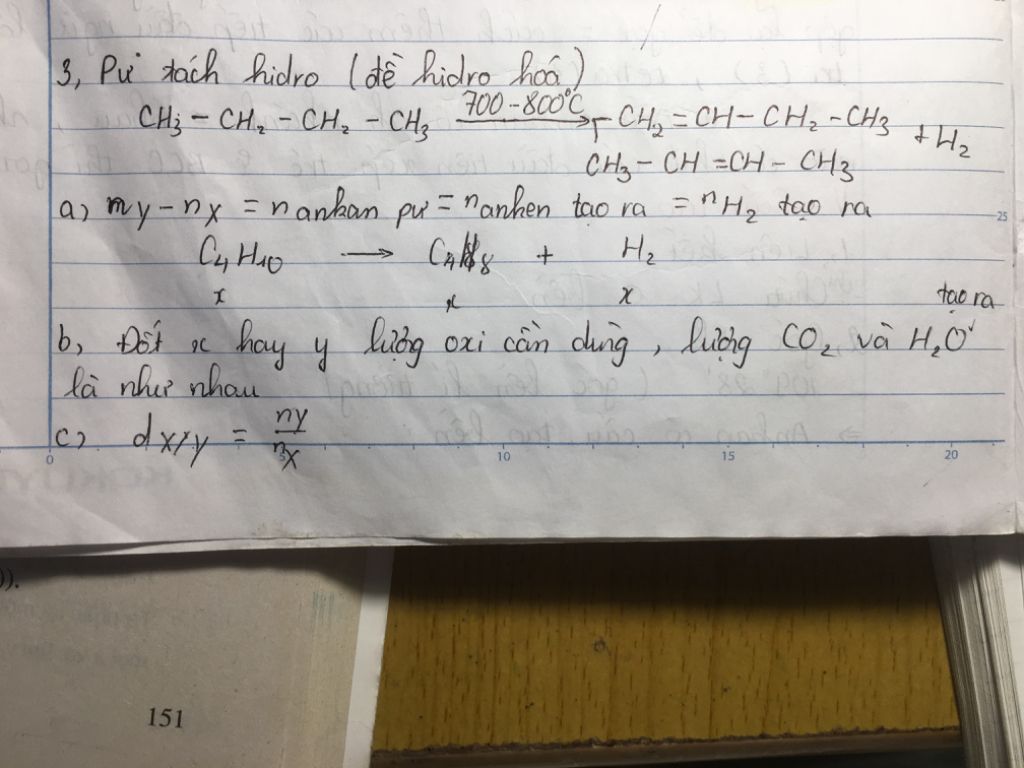 3, Pư tách hidro (đề hidro hoá)
CH3 – CH2 – CH2 – CH3 700 – 800°C → CH2 = CH – CH2 – CH3 + H2
CH3 – CH = CH – CH3
a) ny – nx = n ankan pư = n anken tạo ra = nH2 tạo ra
25
C4H10 → C4H8 + H2
x x x
tạo ra
b, Đốt x hay y lượng oxi cần dùng, lượng CO2 và H2O
là như nhau
c) dx/y = ny/nx
0 5 10 15 20
).
151